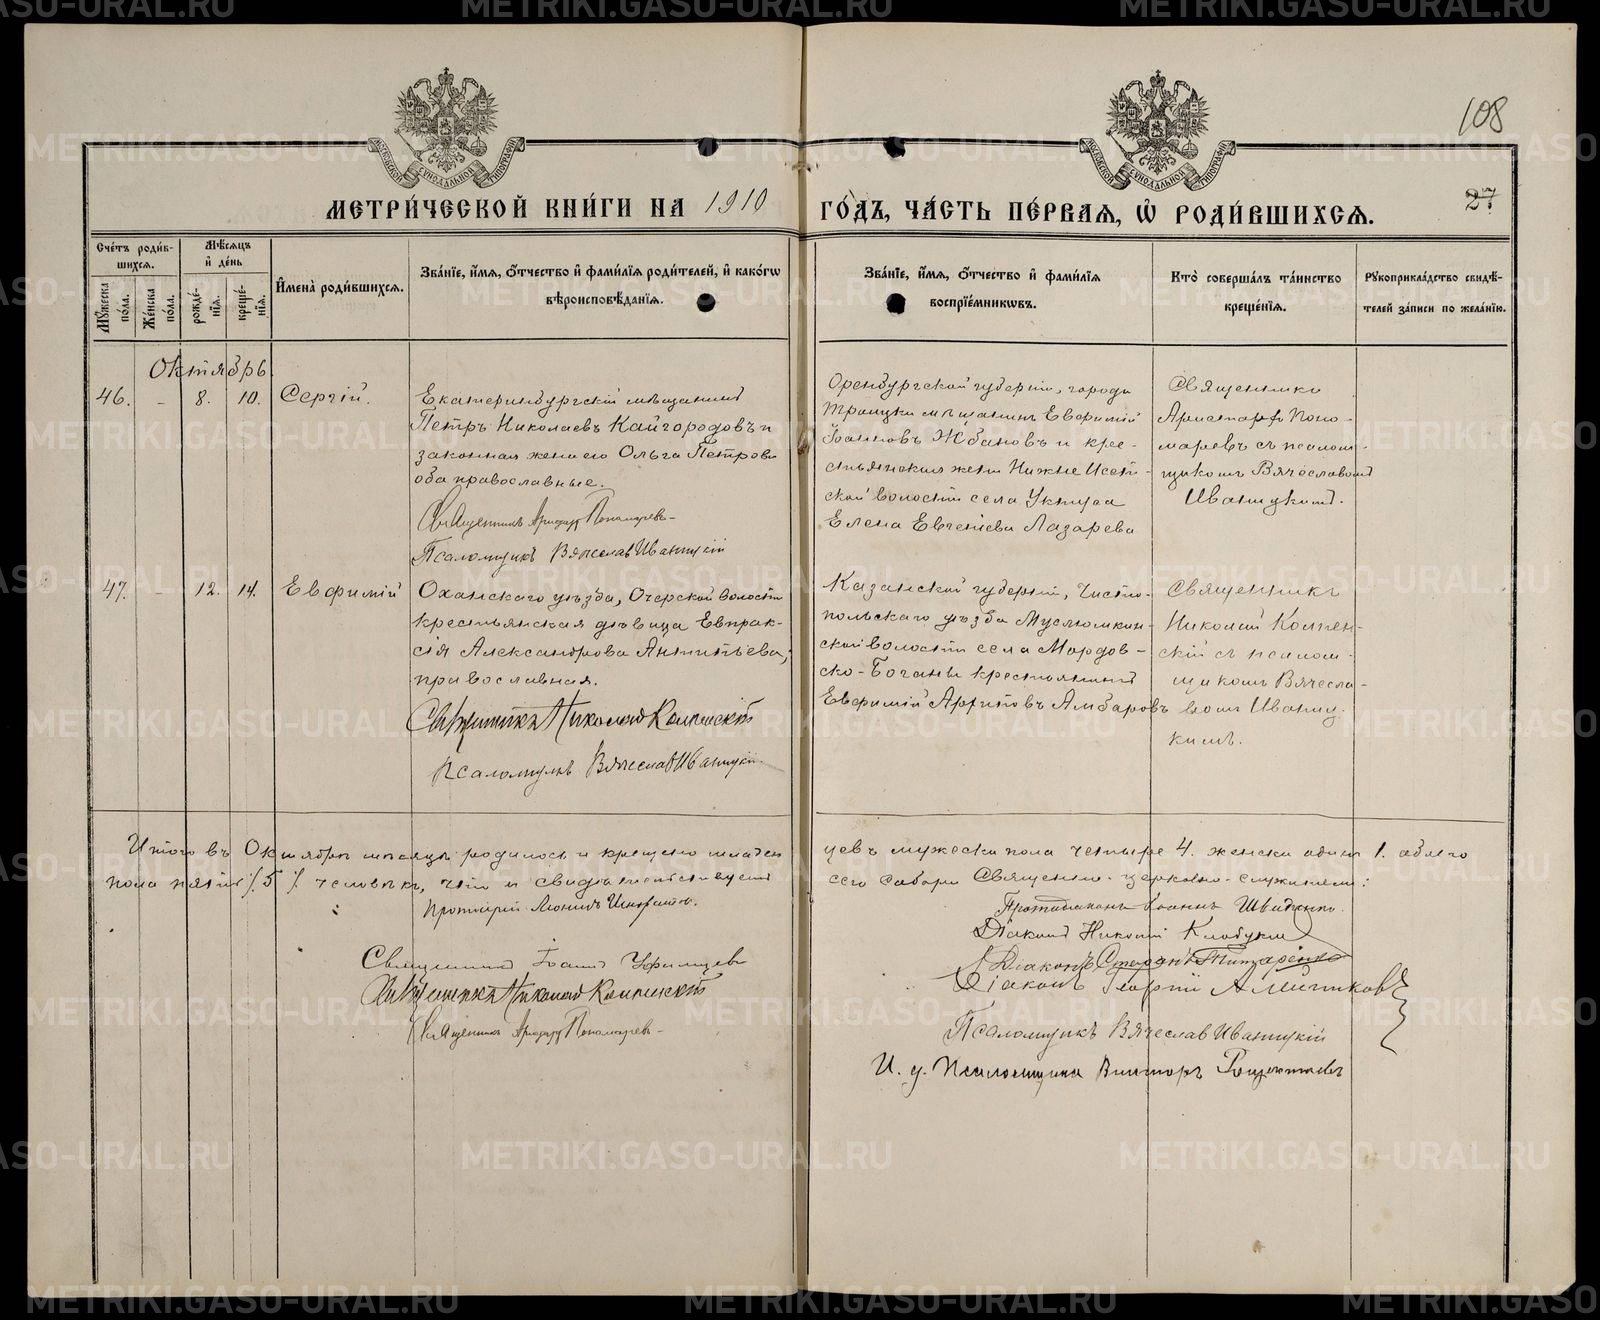 108
27
МЕТРИ́ЧЕСКОЙ КНИ́ГИ НА 1910 ГО́ДЪ, ЧА́СТЬ ПЕ́РВАЯ, Ѡ҆ РОДИ́ВШИХСѦ.
Сче́тъ роди́в-
шихсѧ.
Мꙋжеска по́ла.
Же́нска по́ла.
Мѣ́сѧцъ
и҆ де́нь
рожде́-
нїѧ.
креще́-
нїѧ.
И҆мена̀ роди́вшихсѧ.
Зва́нїе, и҆́мѧ, ѻ҆́тчество и҆ фами́лїѧ роди́телей, и҆ како́гѡ
вѣроисповѣ́данїѧ.
Зва́нїе, и҆́мѧ, ѻ҆́тчество и҆ фами́лїѧ
воспрїе́мникѡвъ.
Кто̀ соверша́лъ та́инство
креще́нїѧ.
Рꙋкоприкла́дство свидѣ́-
телей за́писи по жела́нїю.
Октябрь
46. - 8. 10. Сергій.
Екатеринбургскій мѣщанинъ
Петръ Николаевъ Кайгородовъ и
законная жена его Ольга Петрова
оба православные.
Священникъ Аристархъ Пономаревъ
Псаломщикъ Вячеслав Иваницкій
Оренбургской губерніи, города
Троицка мѣщанинъ Евфимій
Іоанновъ Жбановъ и кре-
стьянская жена Нижне Исет-
ской волости села Уктуса
Елена Евгеніева Лазарева
Священникъ
Аристархъ Поно-
маревъ съ псалом-
щикомъ Вячеславомъ
Иваницкимъ.
47. - 12. 14. Евфимій
Оханскаго уѣзда, Очерской волости
крестьянская дѣвица Евпрак-
сія Александрова Антипьева,
православная.
Священникъ Николай Колпенскій
Псаломщикъ Вячеслав Иваницкій
Казанской губерніи, Чисто-
польскаго уѣзда Муслюмкин-
ской волости села Мордов-
ско-Боганы крестьянинъ
Евфимій Архиповъ Амбаровъ
Священникъ
Николай Колпен-
скій съ псалом-
щикомъ Вячесла-
вомъ Иваниц-
кимъ.
Итого въ Октябрѣ мѣсяцѣ родилось и крещено младен
цевъ мужеска пола четыре 4. женска одинъ 1. обоего
пола пять / 5 / человѣкъ, что и свидѣтельствуемъ
сего Собора Священно-церковно-служители:
Протоіерей Леонидъ Игнатовъ.
Протодіаконъ Іоаннъ Швиденко.
Діаконъ Николай
Священникъ Іоаннъ Уфимцевъ
Діаконъ Стефанъ Титаренко
Священникъ Николай Колпенскій
Діаконъ Георгій
Священникъ Аристархъ Пономаревъ
Псаломщикъ Вячеслав Иваницкій
И. д. Псаломщика Викторъ
METRIKI.GASO-URAL.RU